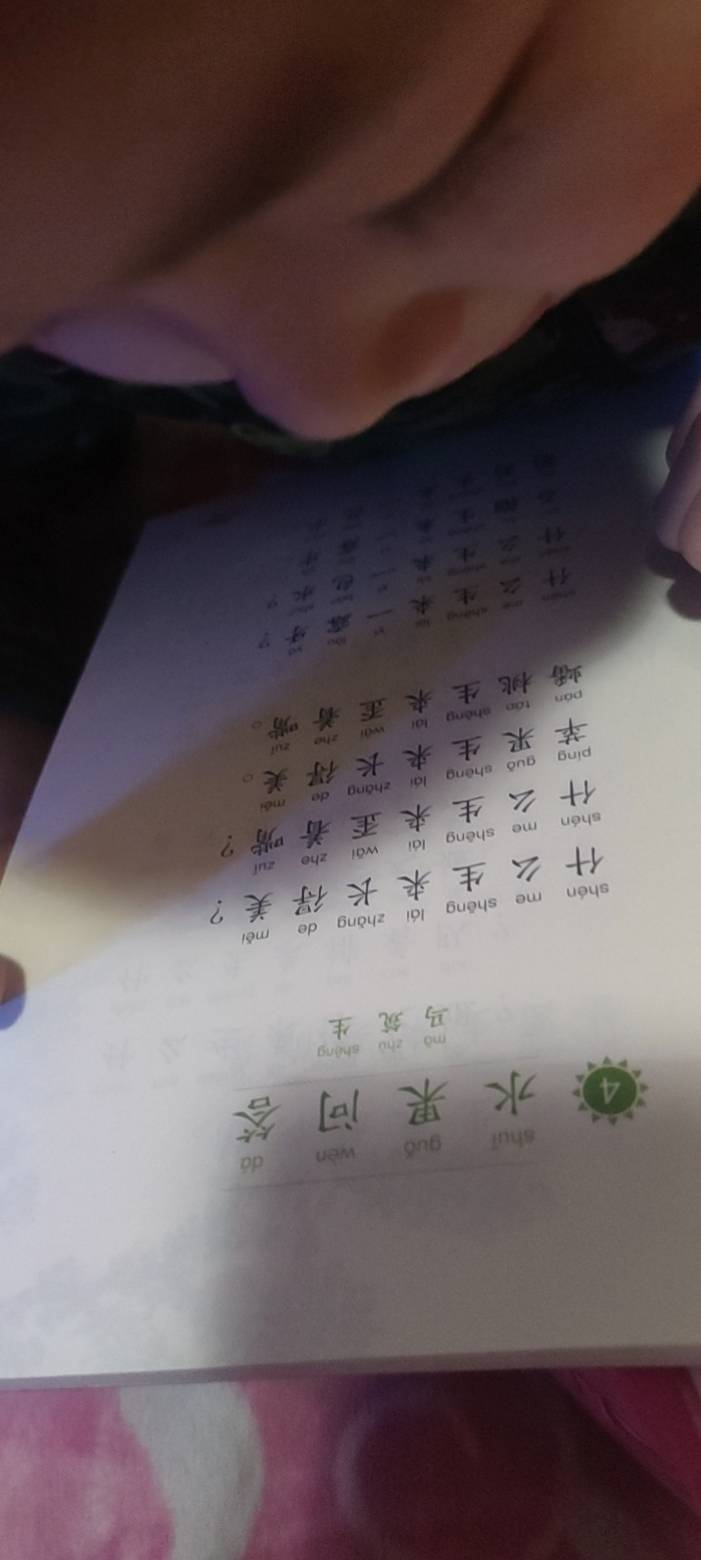 4
shuǐ guǒ wèn dá
水果问答
mǎ zhù shēng
马筑生
shén me shēng lái zhǎng de měi
什么生来长得美？
shén me shēng lái wāi zhe zuǐ
什么生来歪着嘴？
píng guǒ shēng lái zhǎng de měi
苹果生来长得美。
pán táo shēng lái wāi zhe zuǐ
蟠桃生来歪着嘴。
shén me shēng lái yì lòu yá
什么生来一露牙？
什么生来一包水？